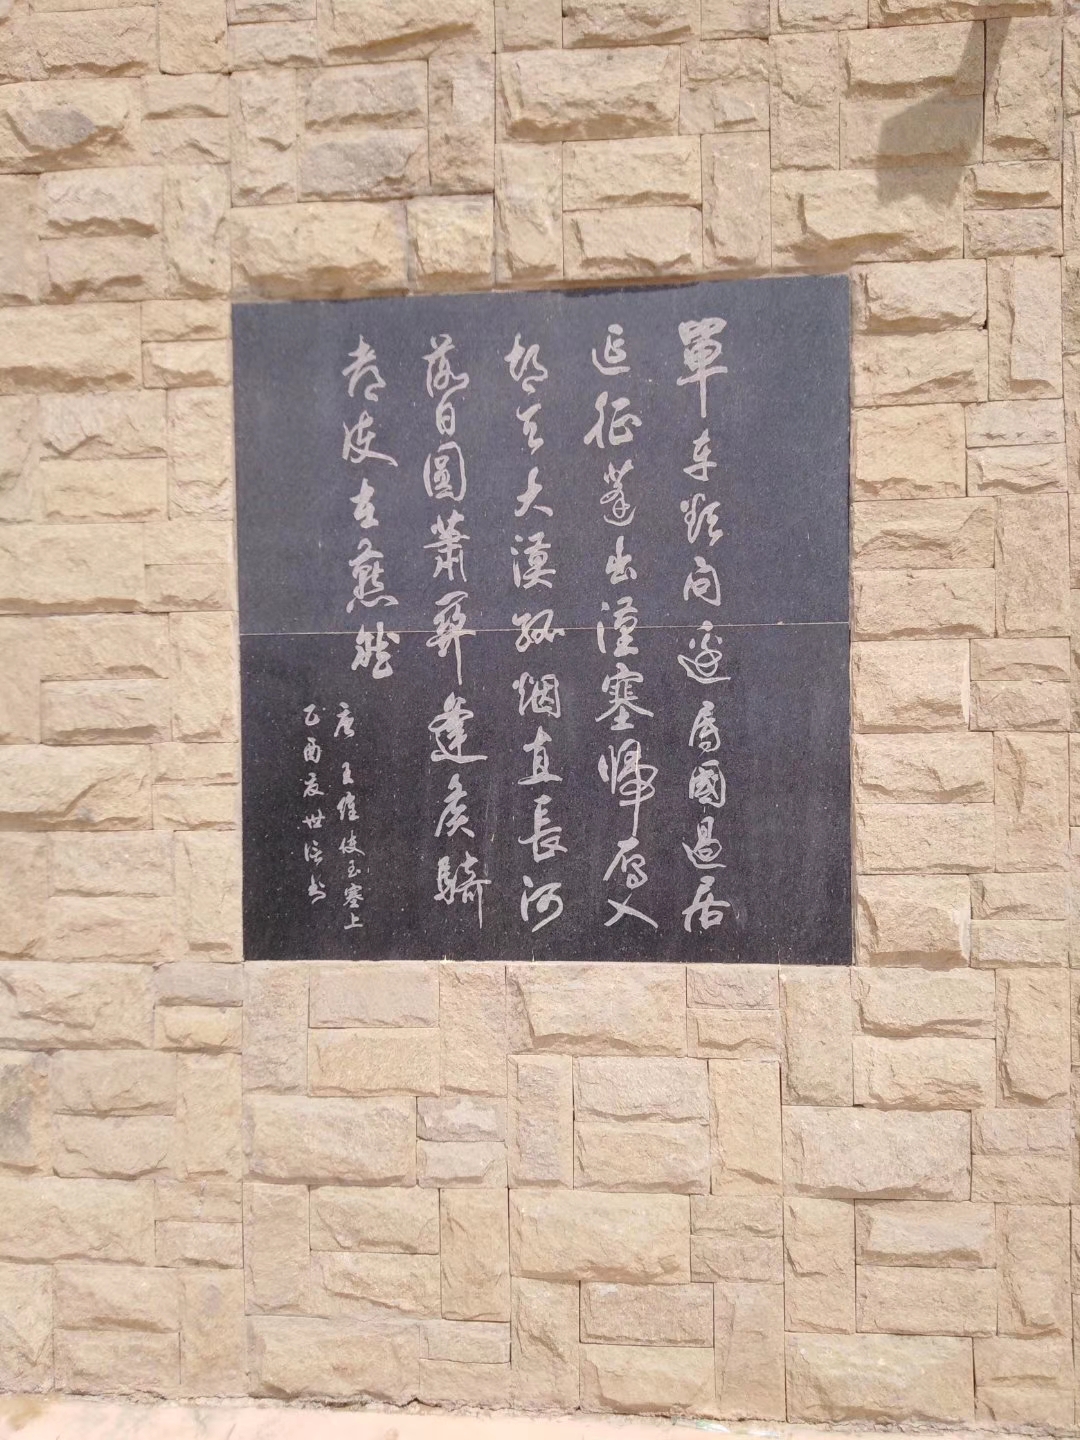 單车欲问邊属國過居
延征蓬出漢塞歸雁入
胡天大漠孤烟直長河
落日圓蕭關逢侯騎
都護在燕然
唐 王維使至塞上
乙酉夏世书